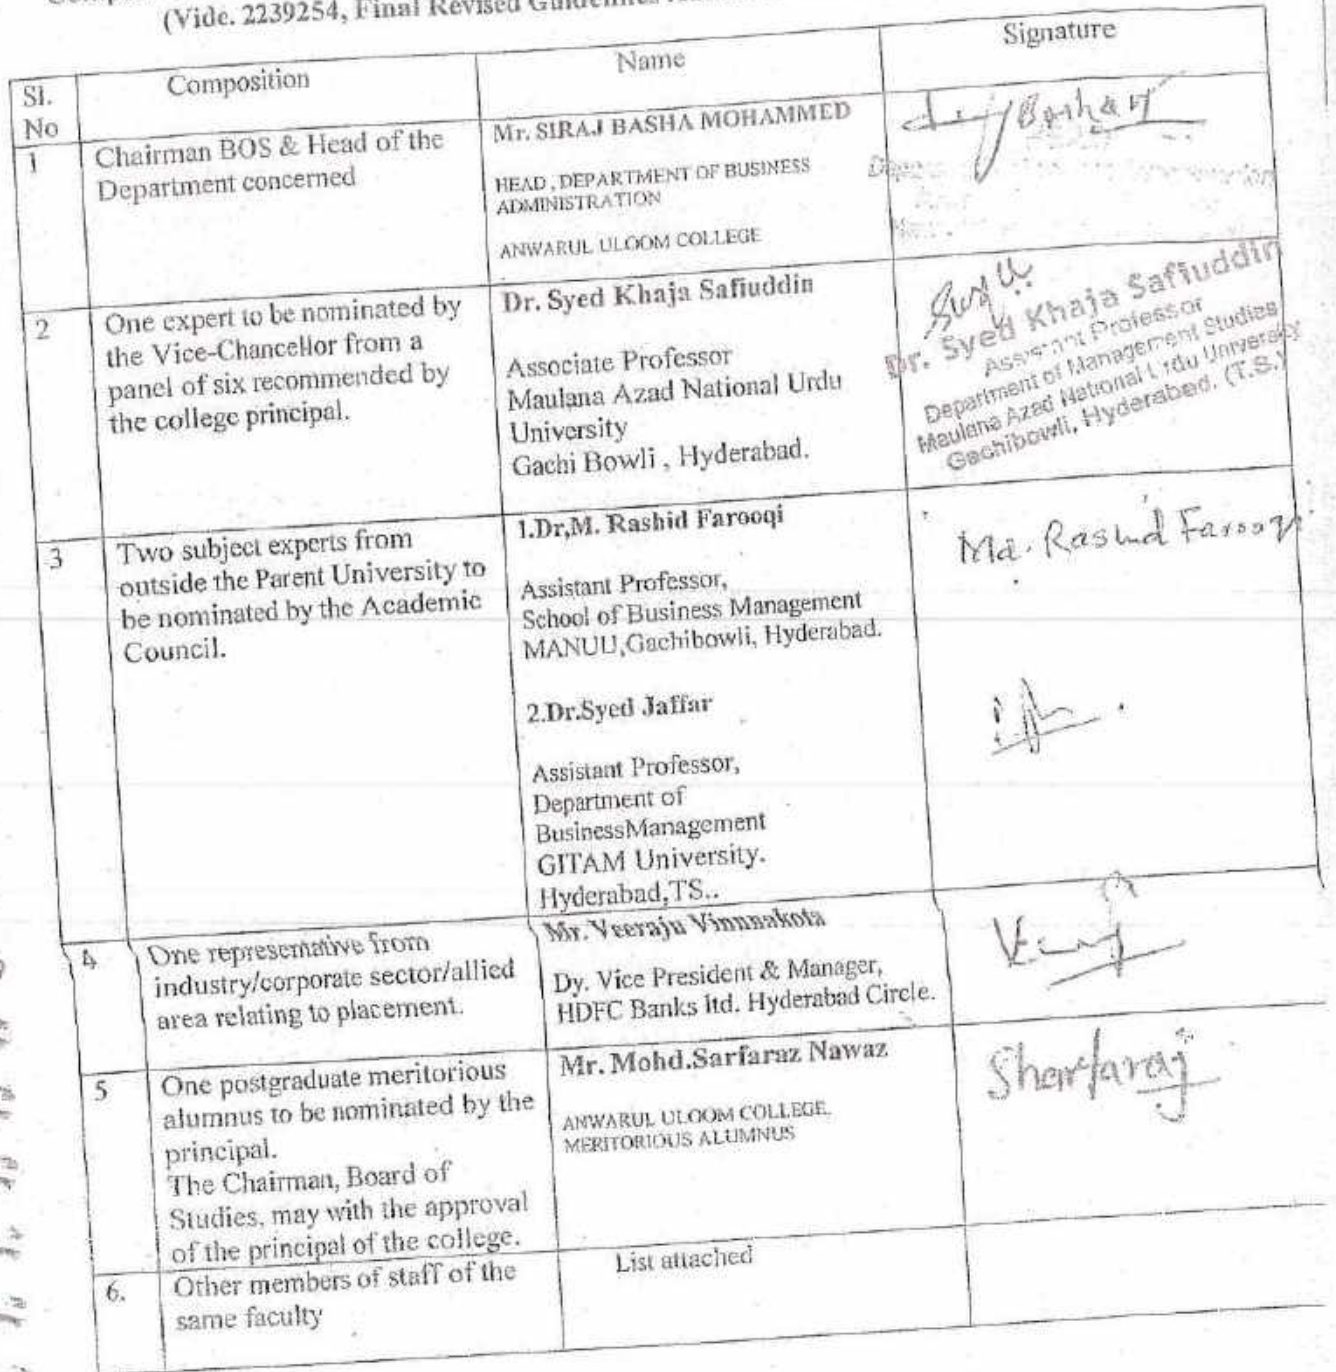 (Vide. 2239254, Final Revised Guidelines
Sl.
No
Composition
Name
Signature
1
Chairman BOS & Head of the
Department concerned
Mr. SIRAJ BASHA MOHAMMED
HEAD , DEPARTMENT OF BUSINESS
ADMINISTRATION
ANWARUL ULOOM COLLEGE
2
One expert to be nominated by
the Vice-Chancellor from a
panel of six recommended by
the college principal.
Dr. Syed Khaja Safiuddin
Associate Professor
Maulana Azad National Urdu
University
Gachi Bowli , Hyderabad.
Dr. Syed Khaja Safiuddin
Assistant Professor
Department of Management Studies
Maulana Azad National Urdu University
Gachibowli, Hyderabad. (T.S.)
3
Two subject experts from
outside the Parent University to
be nominated by the Academic
Council.
1.Dr,M. Rashid Farooqi
Assistant Professor,
School of Business Management
MANUU,Gachibowli, Hyderabad.
2.Dr.Syed Jaffar
Assistant Professor,
Department of
BusinessManagement
GITAM University.
Hyderabad,TS..
Md. Rashid Farooqi
4
One representative from
industry/corporate sector/allied
area relating to placement.
Mr. Veeraju Vinnnakota
Dy. Vice President & Manager,
HDFC Banks ltd. Hyderabad Circle.
5
One postgraduate meritorious
alumnus to be nominated by the
principal.
The Chairman, Board of
Studies, may with the approval
of the principal of the college.
Mr. Mohd.Sarfaraz Nawaz
ANWARUL ULOOM COLLEGE,
MERITORIOUS ALUMNUS
Sharfaraj
6.
Other members of staff of the
same faculty
List attached